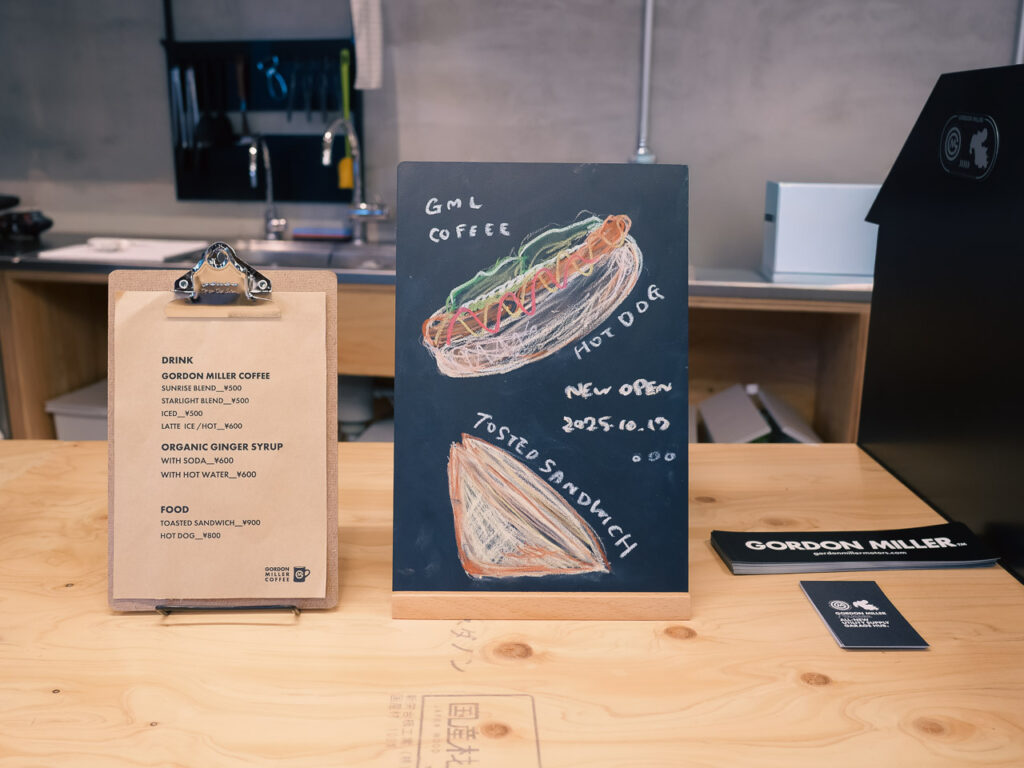 DRINK
GORDON MILLER COFFEE
SUNRISE BLEND__¥500
STARLIGHT BLEND__¥500
ICED__¥500
LATTE ICE / HOT__¥600
ORGANIC GINGER SYRUP
WITH SODA__¥600
WITH HOT WATER__¥600
FOOD
TOASTED SANDWICH__¥900
HOT DOG__¥800
GORDON
MILLER
COFFEE
GML
COFFEE
HOT DOG
NEW OPEN
2025.10.17
TOSTED SANDWICH
GORDON MILLER
GORDON MILLER™
gordonmillermotors.com
GORDON MILLER
ALL-NEW
UTILITY SUPPLY
GARAGE HUB.
国産材